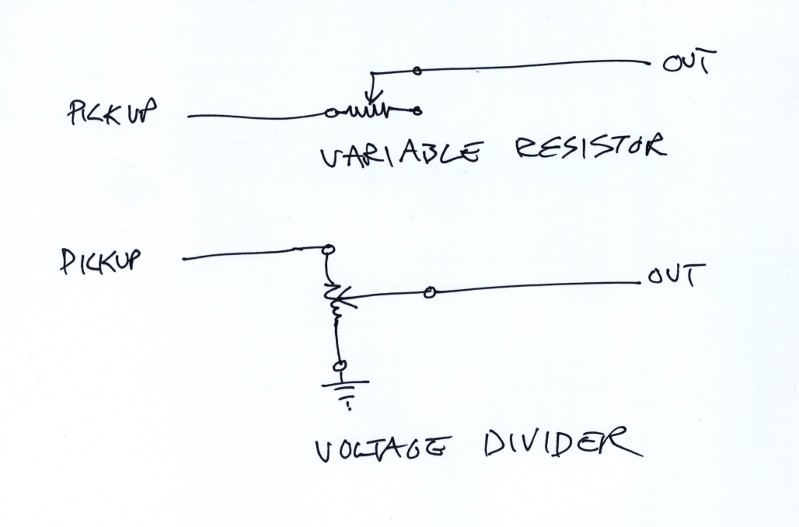 OUT
PICKUP
VARIABLE RESISTOR
PICKUP
OUT
VOLTAGE DIVIDER